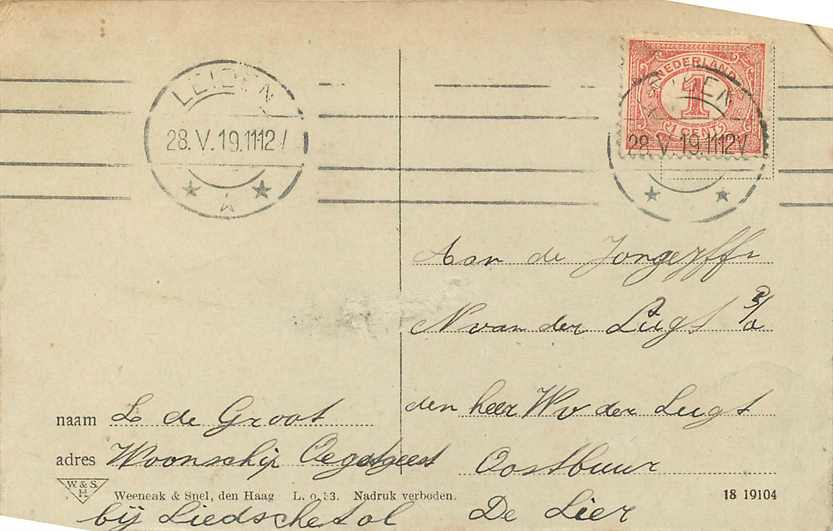 LEIDEN
28.V.19.11-12V
NEDERLAND
1
1 CENT
28.V.19.11-12V
Aan de Jongejffr
N van der Lugt P/a
den heer W v der Lugt
Oostbuur
De Lier
naam L de Groot
adres Woonschip Oegstgeest
bij Liedschetol
W. & S.
H
Weenenk & Snel, den Haag L. o. 13. Nadruk verboden.
18 19104